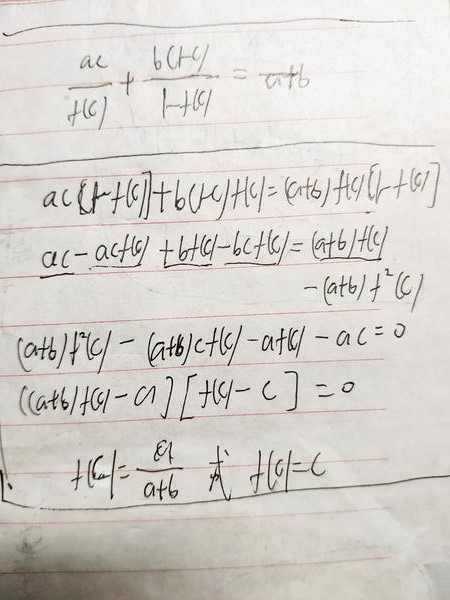 ac/f(c) + b(1-c)/1-f(c) = a+b
ac[1-f(c)]+b(1-c)f(c)=(a+b)f(c)[1-f(c)]
ac-acf(c)+bf(c)-bcf(c)=(a+b)f(c)
-(a+b)f²(c)
(a+b)f²(c)-(a+b)cf(c)-af(c)-ac=0
((a+b)f(c)-a][f(c)-c]=0
f(c)=a/a+b 或 f(c)=c